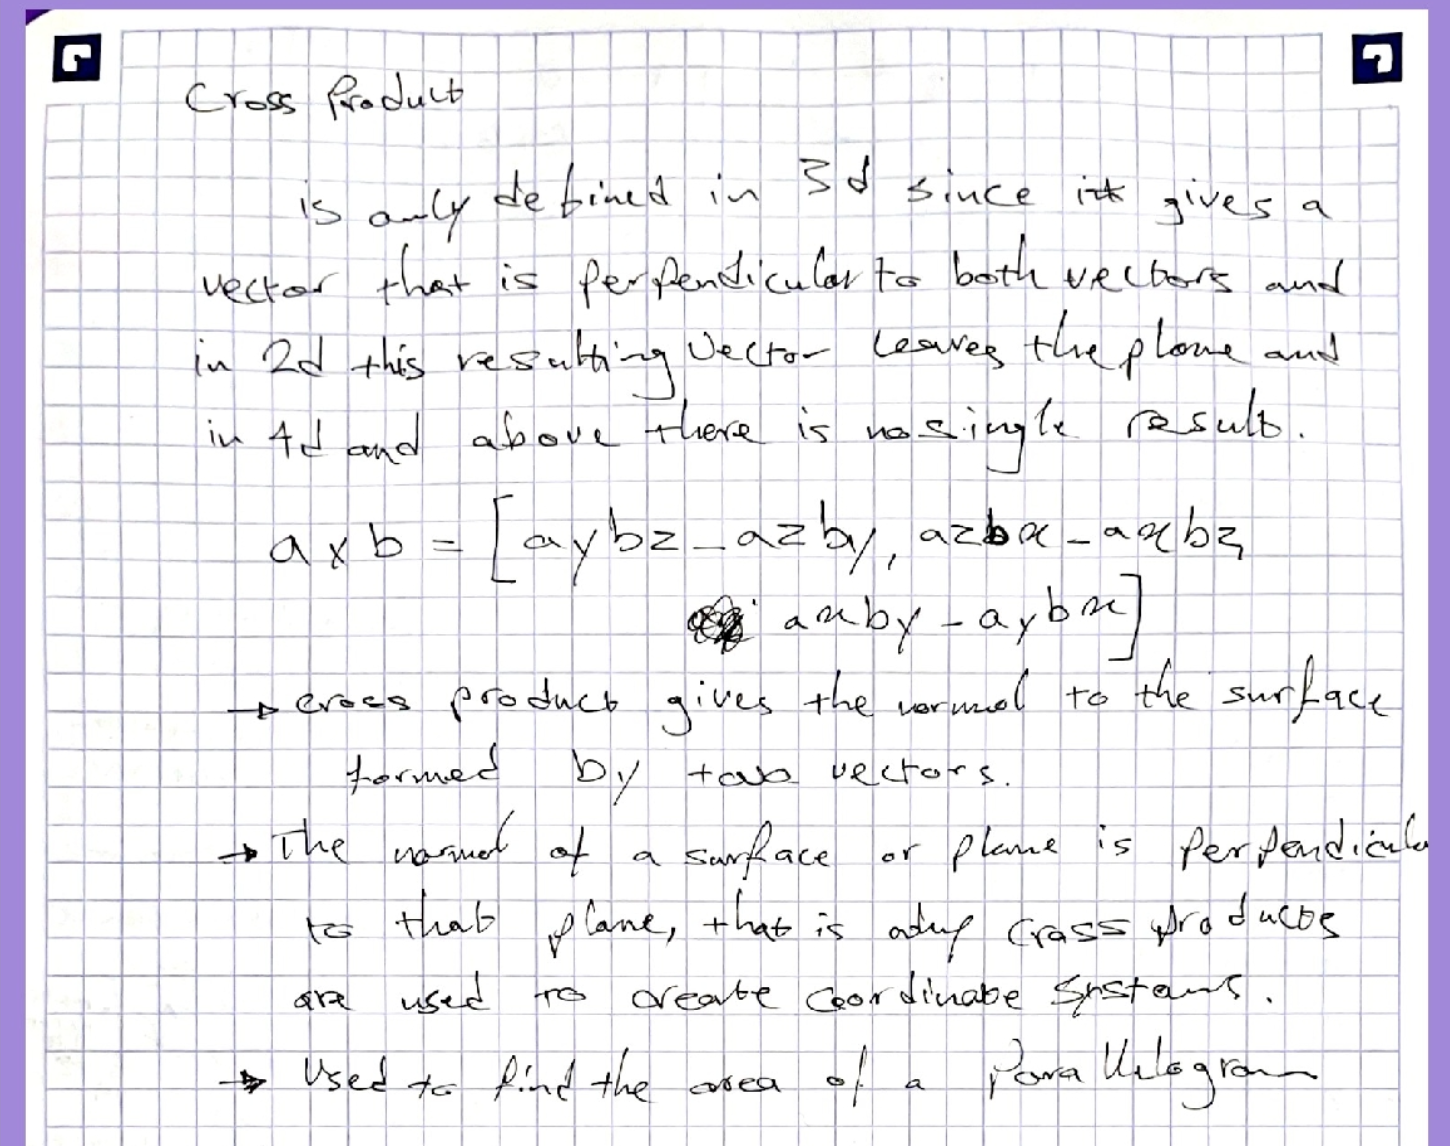 Cross Product
is only defined in 3d since it gives a
vector that is perpendicular to both vectors and
in 2d this resulting vector leaves the plane and
in 4d and above there is no single result.
a x b = [aybz - azby, azbx - axbz,
axby - aybx]
→ cross product gives the normal to the surface
formed by two vectors.
→ The normal of a surface or plane is perpendicula
to that plane, that is cross products
are used to create coordinate systems.
→ Used to find the area of a Parallelogram